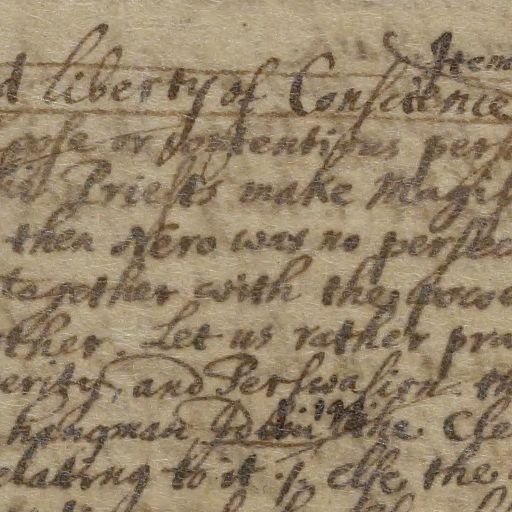 Item
d liberty of Conscience
oose or contentious pers
Priests make Magis
then Nero was no persec
together with the powe
ther. Let us rather pra
erity, and Perswasion th
hangman the Cle
elating to it. else the